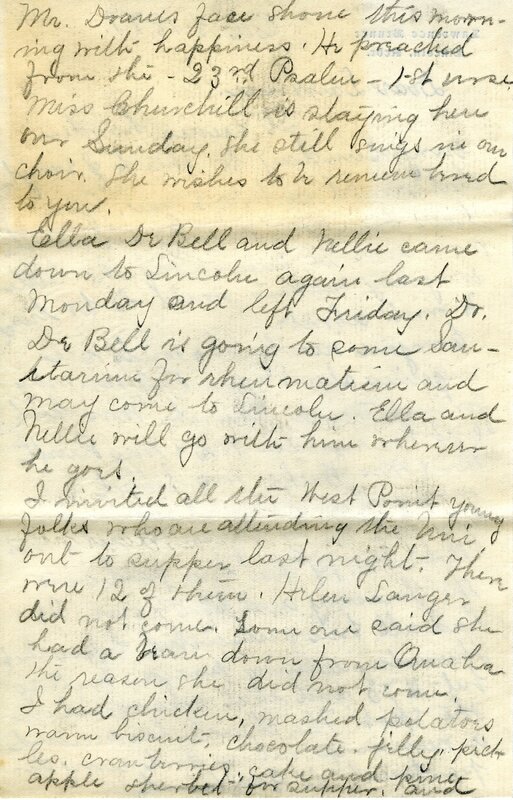 Mr. Doanes face shone this morn-
ing with happiness. He preached
from the - 23rd Psalm - 1st verse.
Miss Churchill is staying here
over Sunday. She still sings in our
choir. She wishes to be remembered
to you.
Ella De Bell and Nellie came
down to Lincoln again last
Monday and left Friday. Dr.
De Bell is going to some San-
itarium for rheumatism and
may come to Lincoln. Ella and
Nellie will go with him wherever
he goes.
I invited all the West Point young
folks who are attending the Uni
out to supper last night. There
were 12 of them. Helen Sanger
did not come. Some one said she
had a beau down from Omaha
the reason she did not come.
I had chicken, mashed potatoes
warm biscuit, chocolate, jelly, pick-
les, cranberries, cake and pine
apple sherbet for supper, and